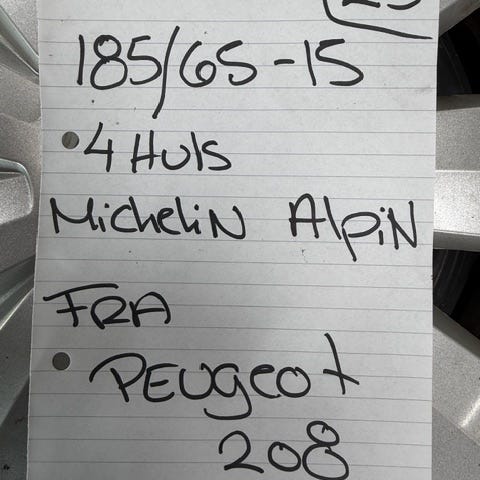 185/65-15
4 Huls
Michelin Alpin
FRA
PEUgeot
208